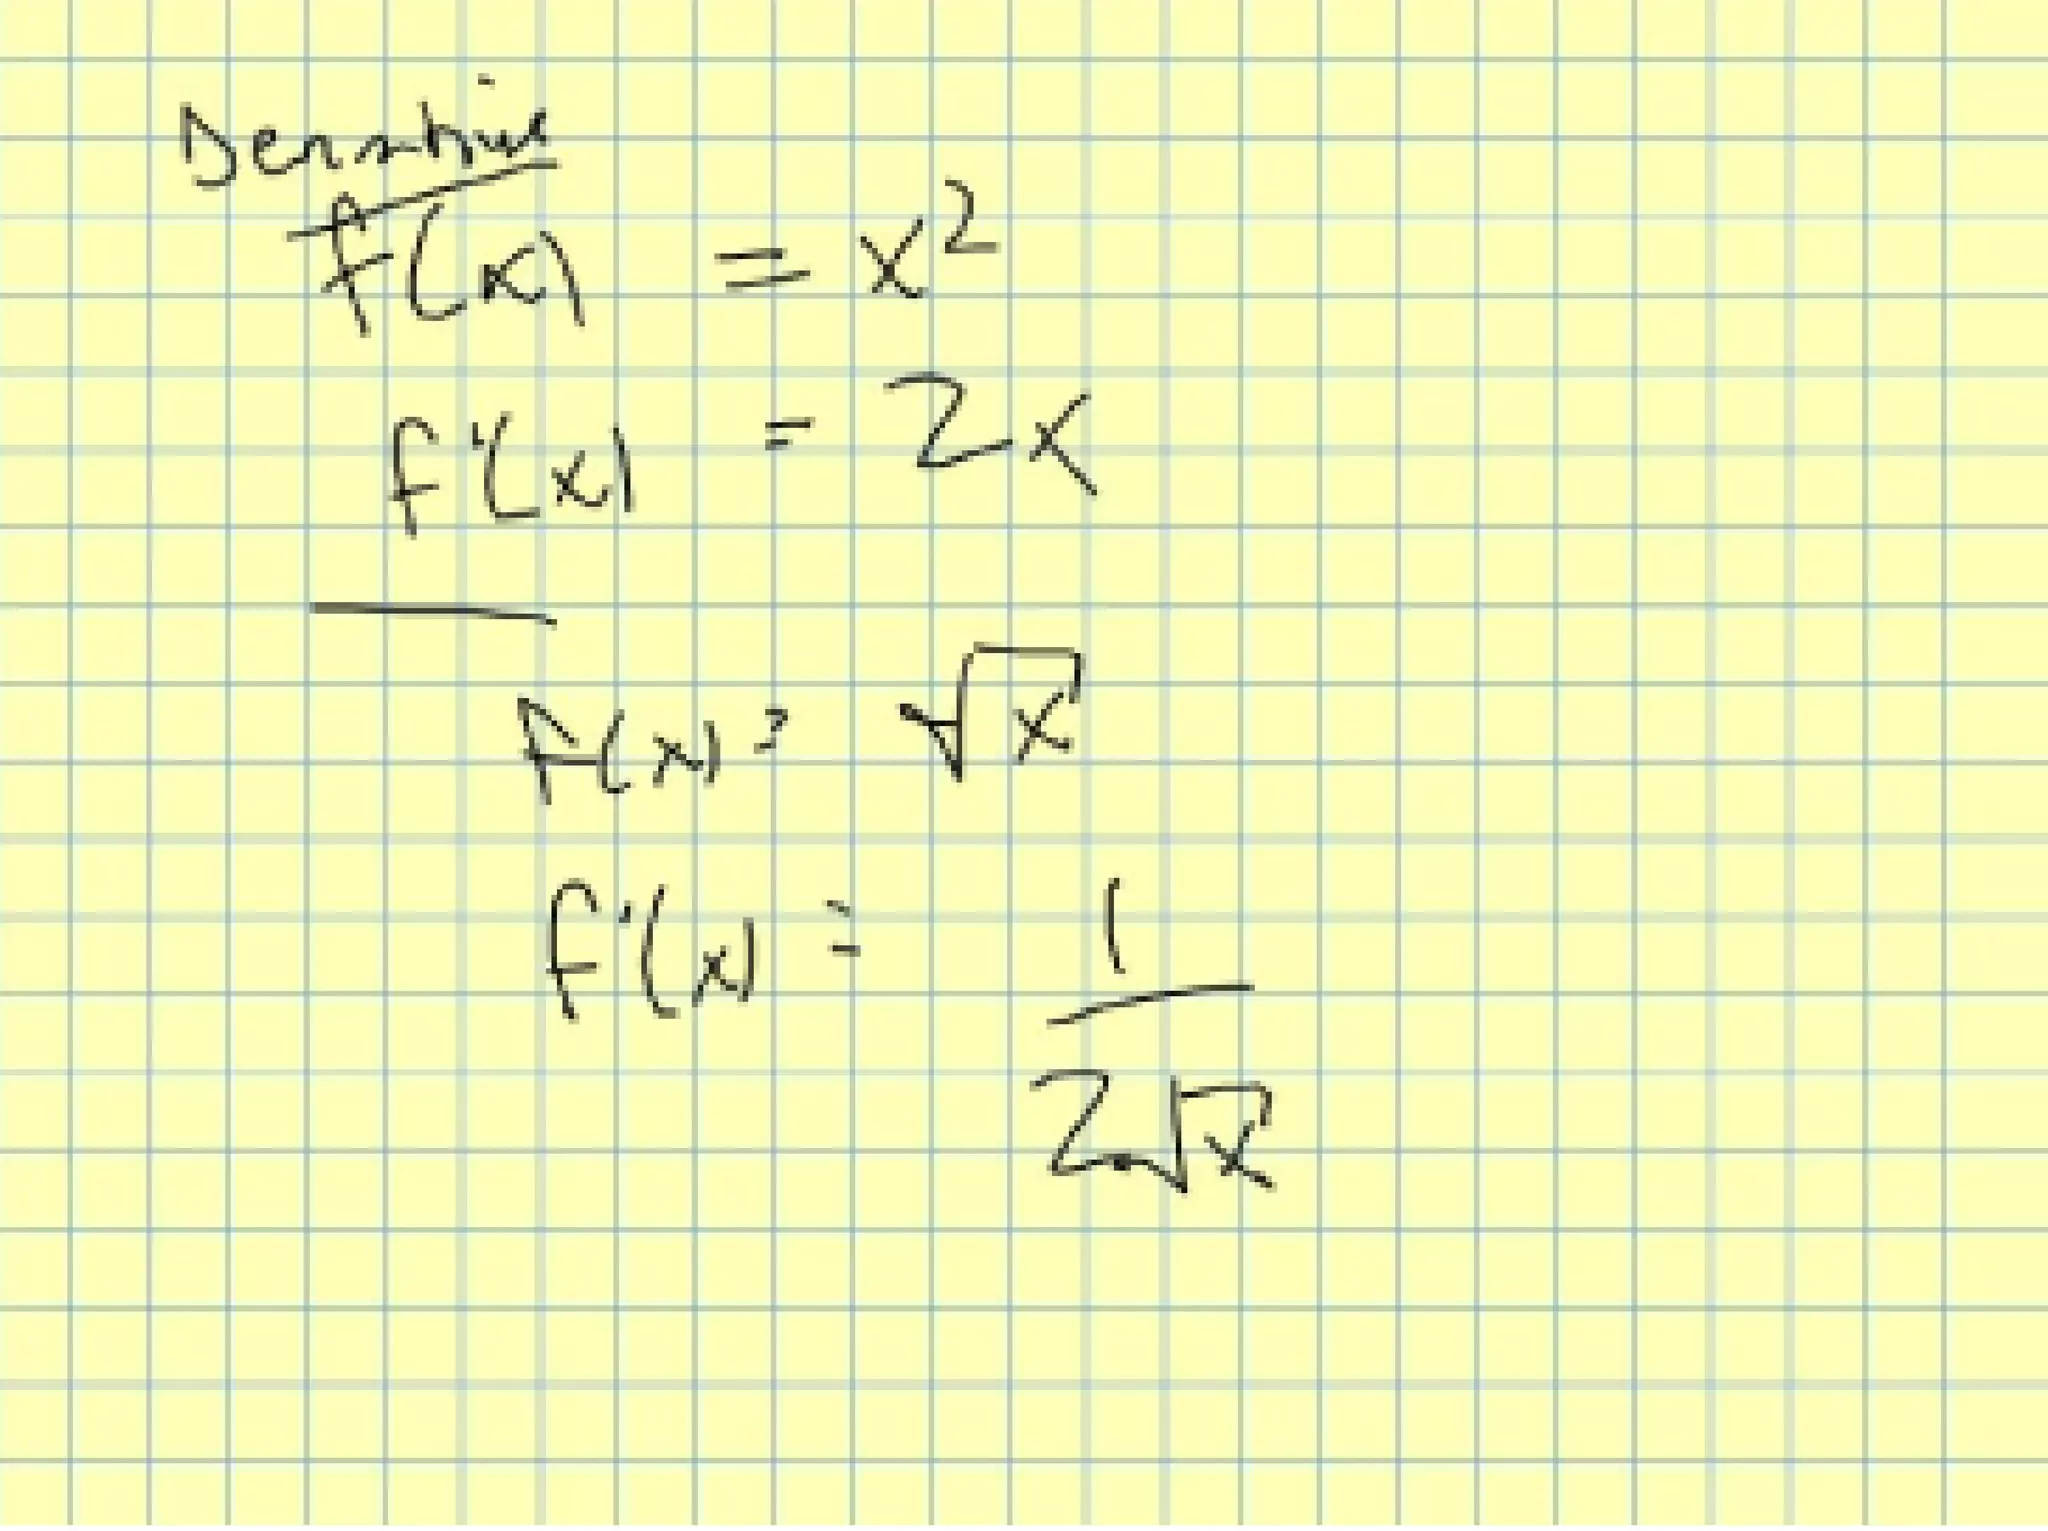 Derivative
f(x) = x²
f'(x) = 2x
f(x) = √x
f'(x) = 1/(2√x)